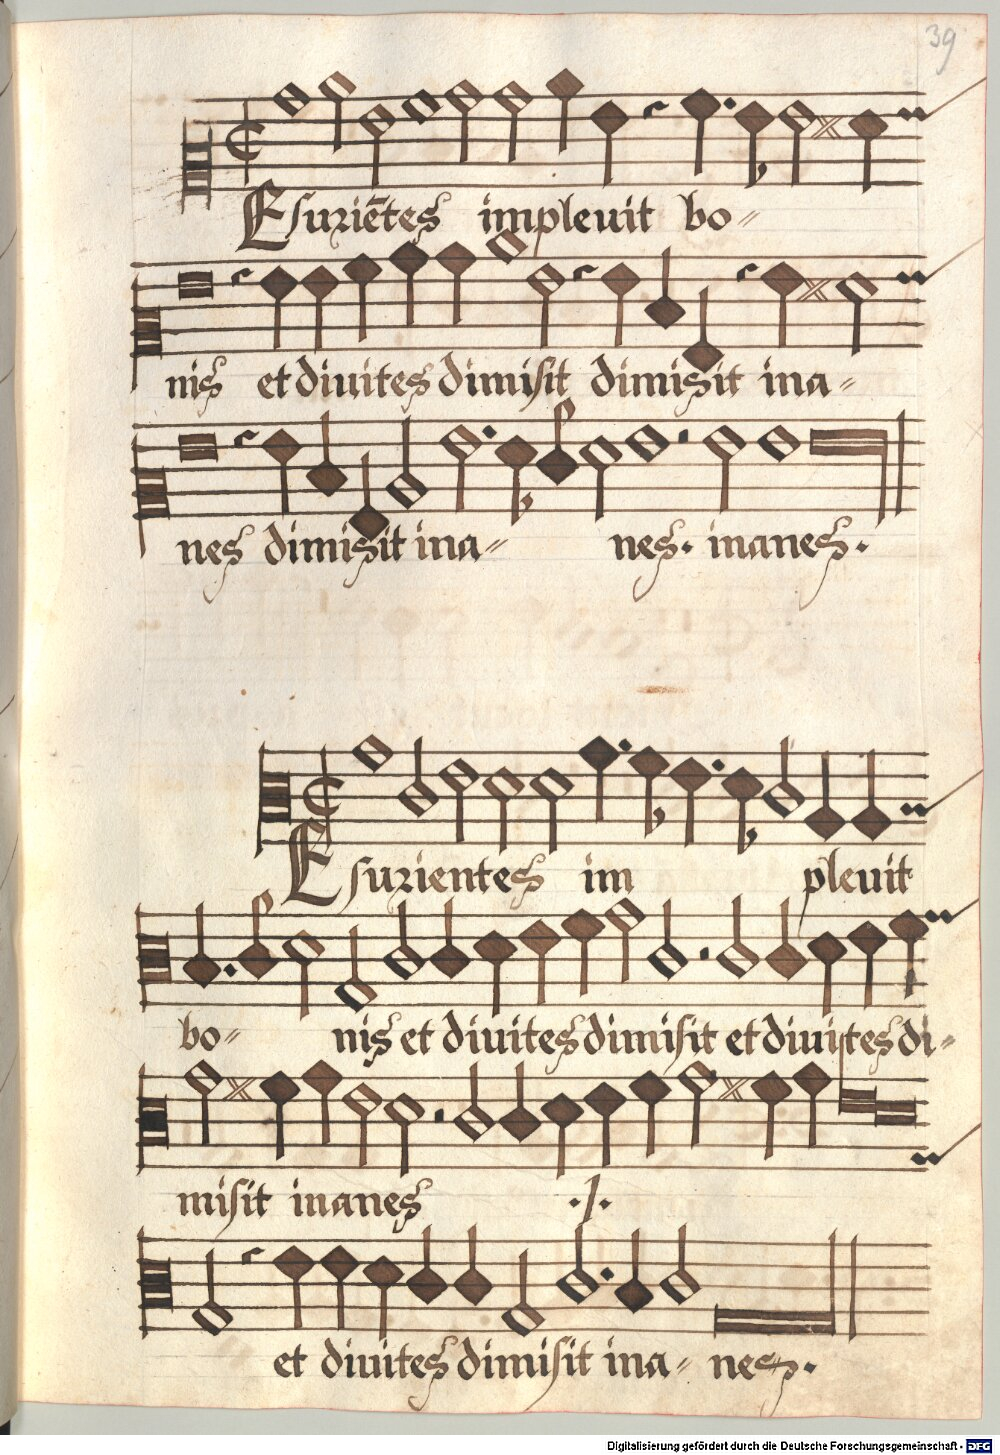 39
Esuriētes impleuit bo=
nis et diuites dimisit dimisit ina=
nes dimisit ina= nes. inanes.
Esurientes im pleuit
bo= nis et diuites dimisit et diuites di=
misit inanes ./.
et diuites dimisit ina= nes.
Digitalisierung gefördert durch die Deutsche Forschungsgemeinschaft - DFG